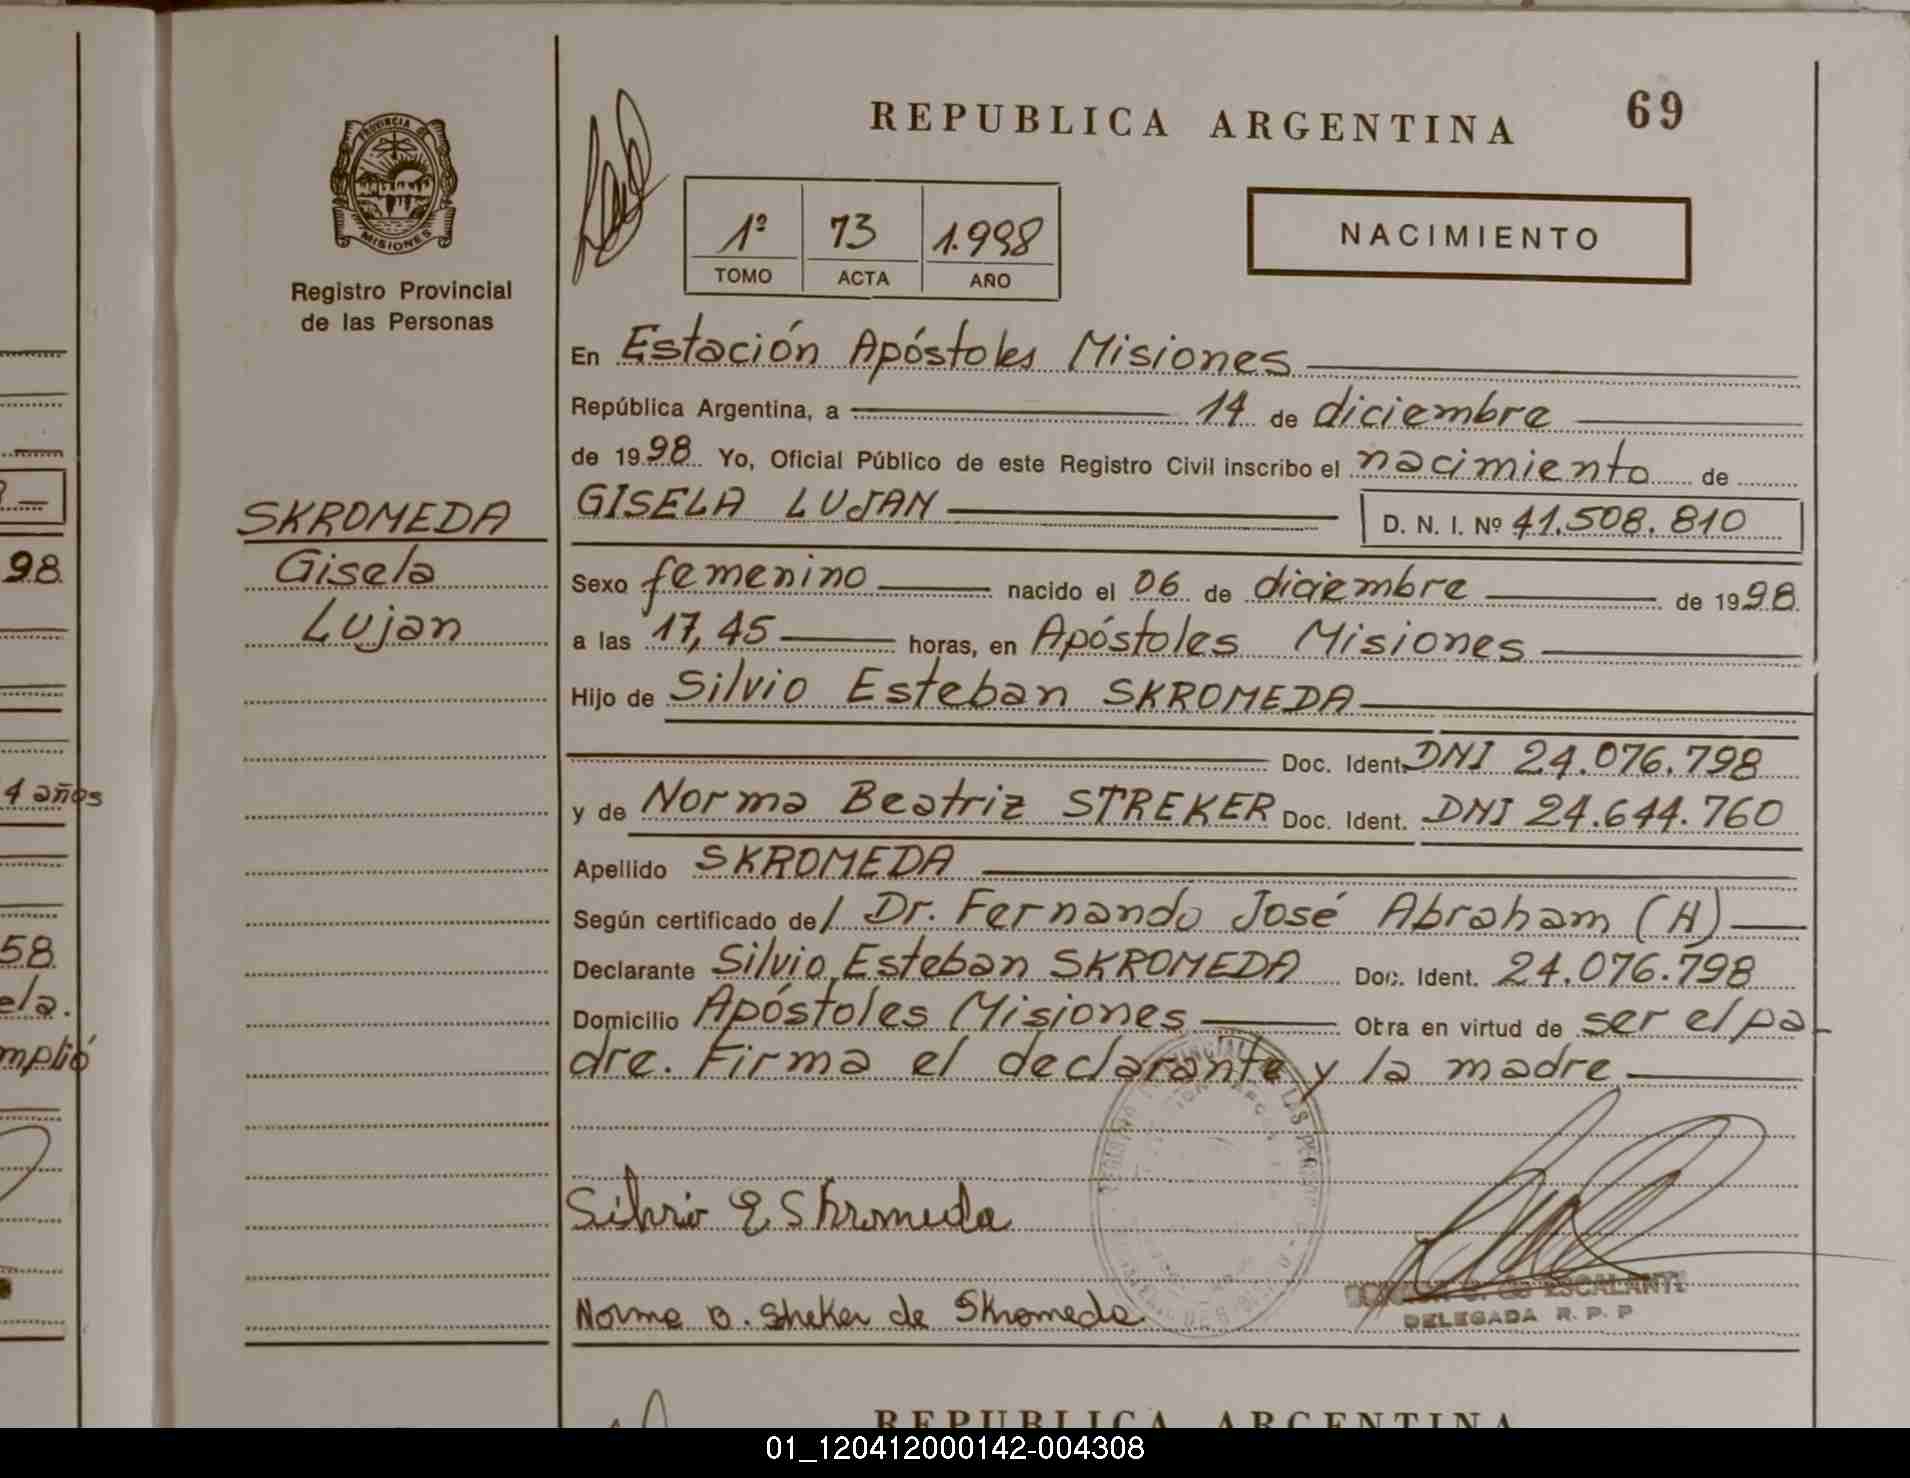 REPUBLICA ARGENTINA
69
PROVINCIA DE
MISIONES
Registro Provincial
de las Personas
1º 73 1.998
TOMO ACTA AÑO
NACIMIENTO
En Estación Apóstoles Misiones
República Argentina, a 14 de diciembre
de 1998 Yo, Oficial Público de este Registro Civil inscribo el nacimiento de
GISELA LUJAN D. N. I. Nº 41.508.810
SKROMEDA
Gisela
Lujan
Sexo femenino nacido el 06 de diciembre de 1998
a las 17,45 horas, en Apóstoles Misiones
Hijo de Silvio Esteban SKROMEDA
Doc. Ident. DNI 24.076.798
y de Norma Beatriz STREKER Doc. Ident. DNI 24.644.760
Apellido SKROMEDA
Según certificado de/ Dr. Fernando José Abraham (H)
Declarante Silvio Esteban SKROMEDA Doc. Ident. 24.076.798
Domicilio Apóstoles Misiones Obra en virtud de ser el pa-
dre. Firma el declarante y la madre
Silvio E Skromeda
Norma B. Streker de Skromeda
ESCALANTE
DELEGADA R. P. P
98
4 años
58
ela.
mplió
REPUBLICA ARGENTINA
01_120412000142-004308